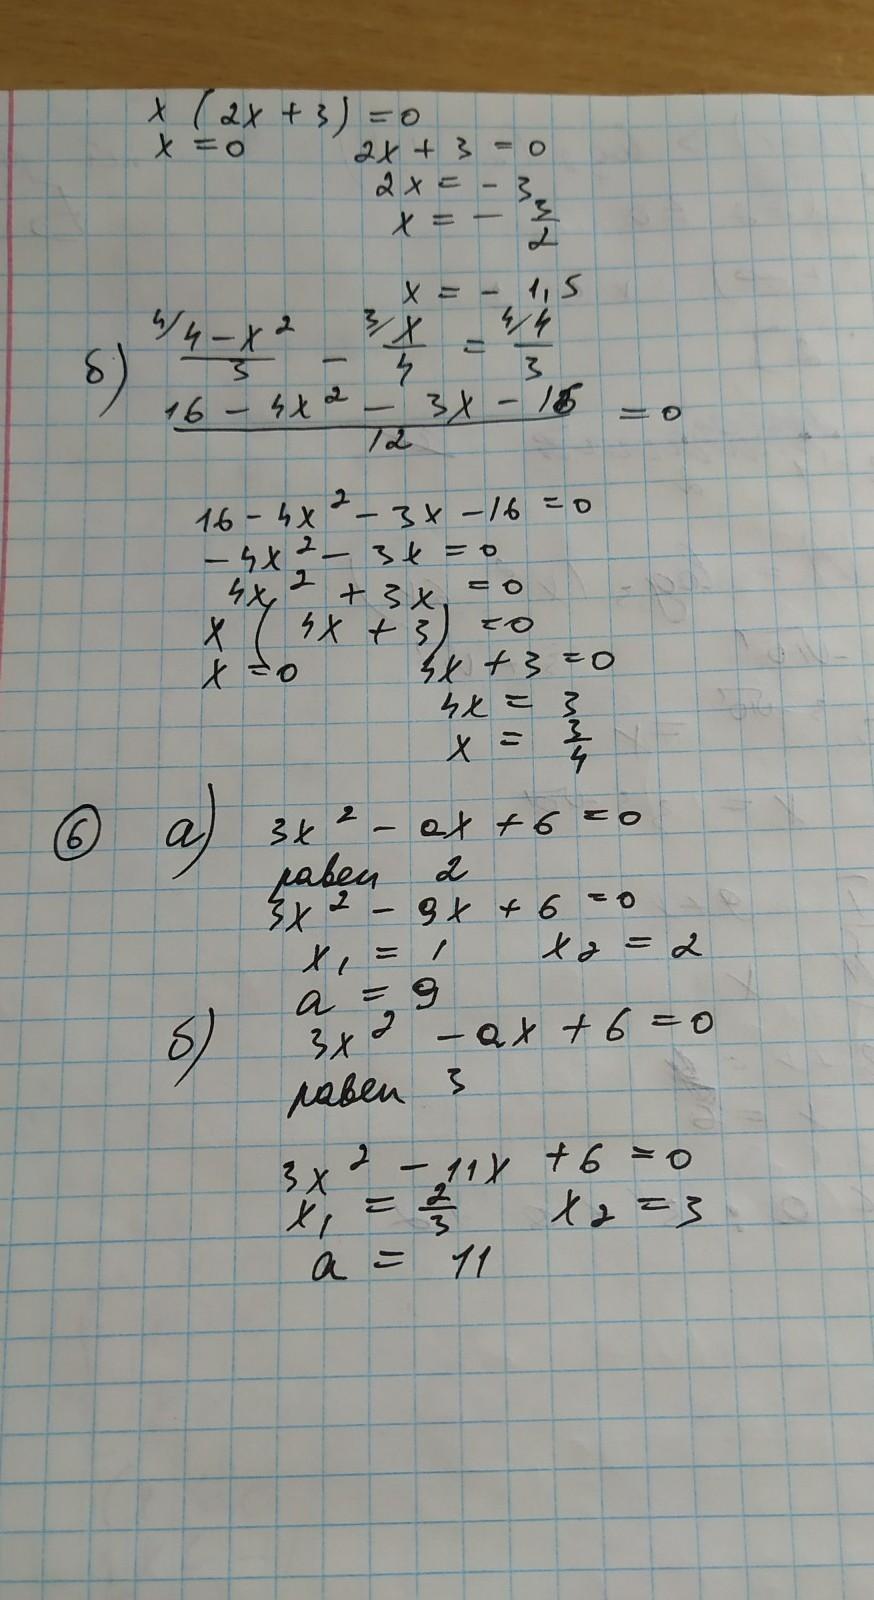 x (2x + 3) = 0
x = 0 2x + 3 = 0
2x = - 3
x = - 3/2
x = - 1,5
б) 4/ 4 - x² / 3 - 3/ x / 4 = 4/ 4 / 3
16 - 4x² - 3x - 16 / 12 = 0
16 - 4x² - 3x - 16 = 0
- 4x² - 3x = 0
4x² + 3x = 0
x (4x + 3) = 0
x = 0 4x + 3 = 0
4x = 3
x = 3/4
6 а) 3x² - ax + 6 = 0
равен 2
3x² - 9x + 6 = 0
x₁ = 1 x₂ = 2
a = 9
б) 3x² - ax + 6 = 0
равен 3
3x² - 11x + 6 = 0
x₁ = 2/3 x₂ = 3
a = 11